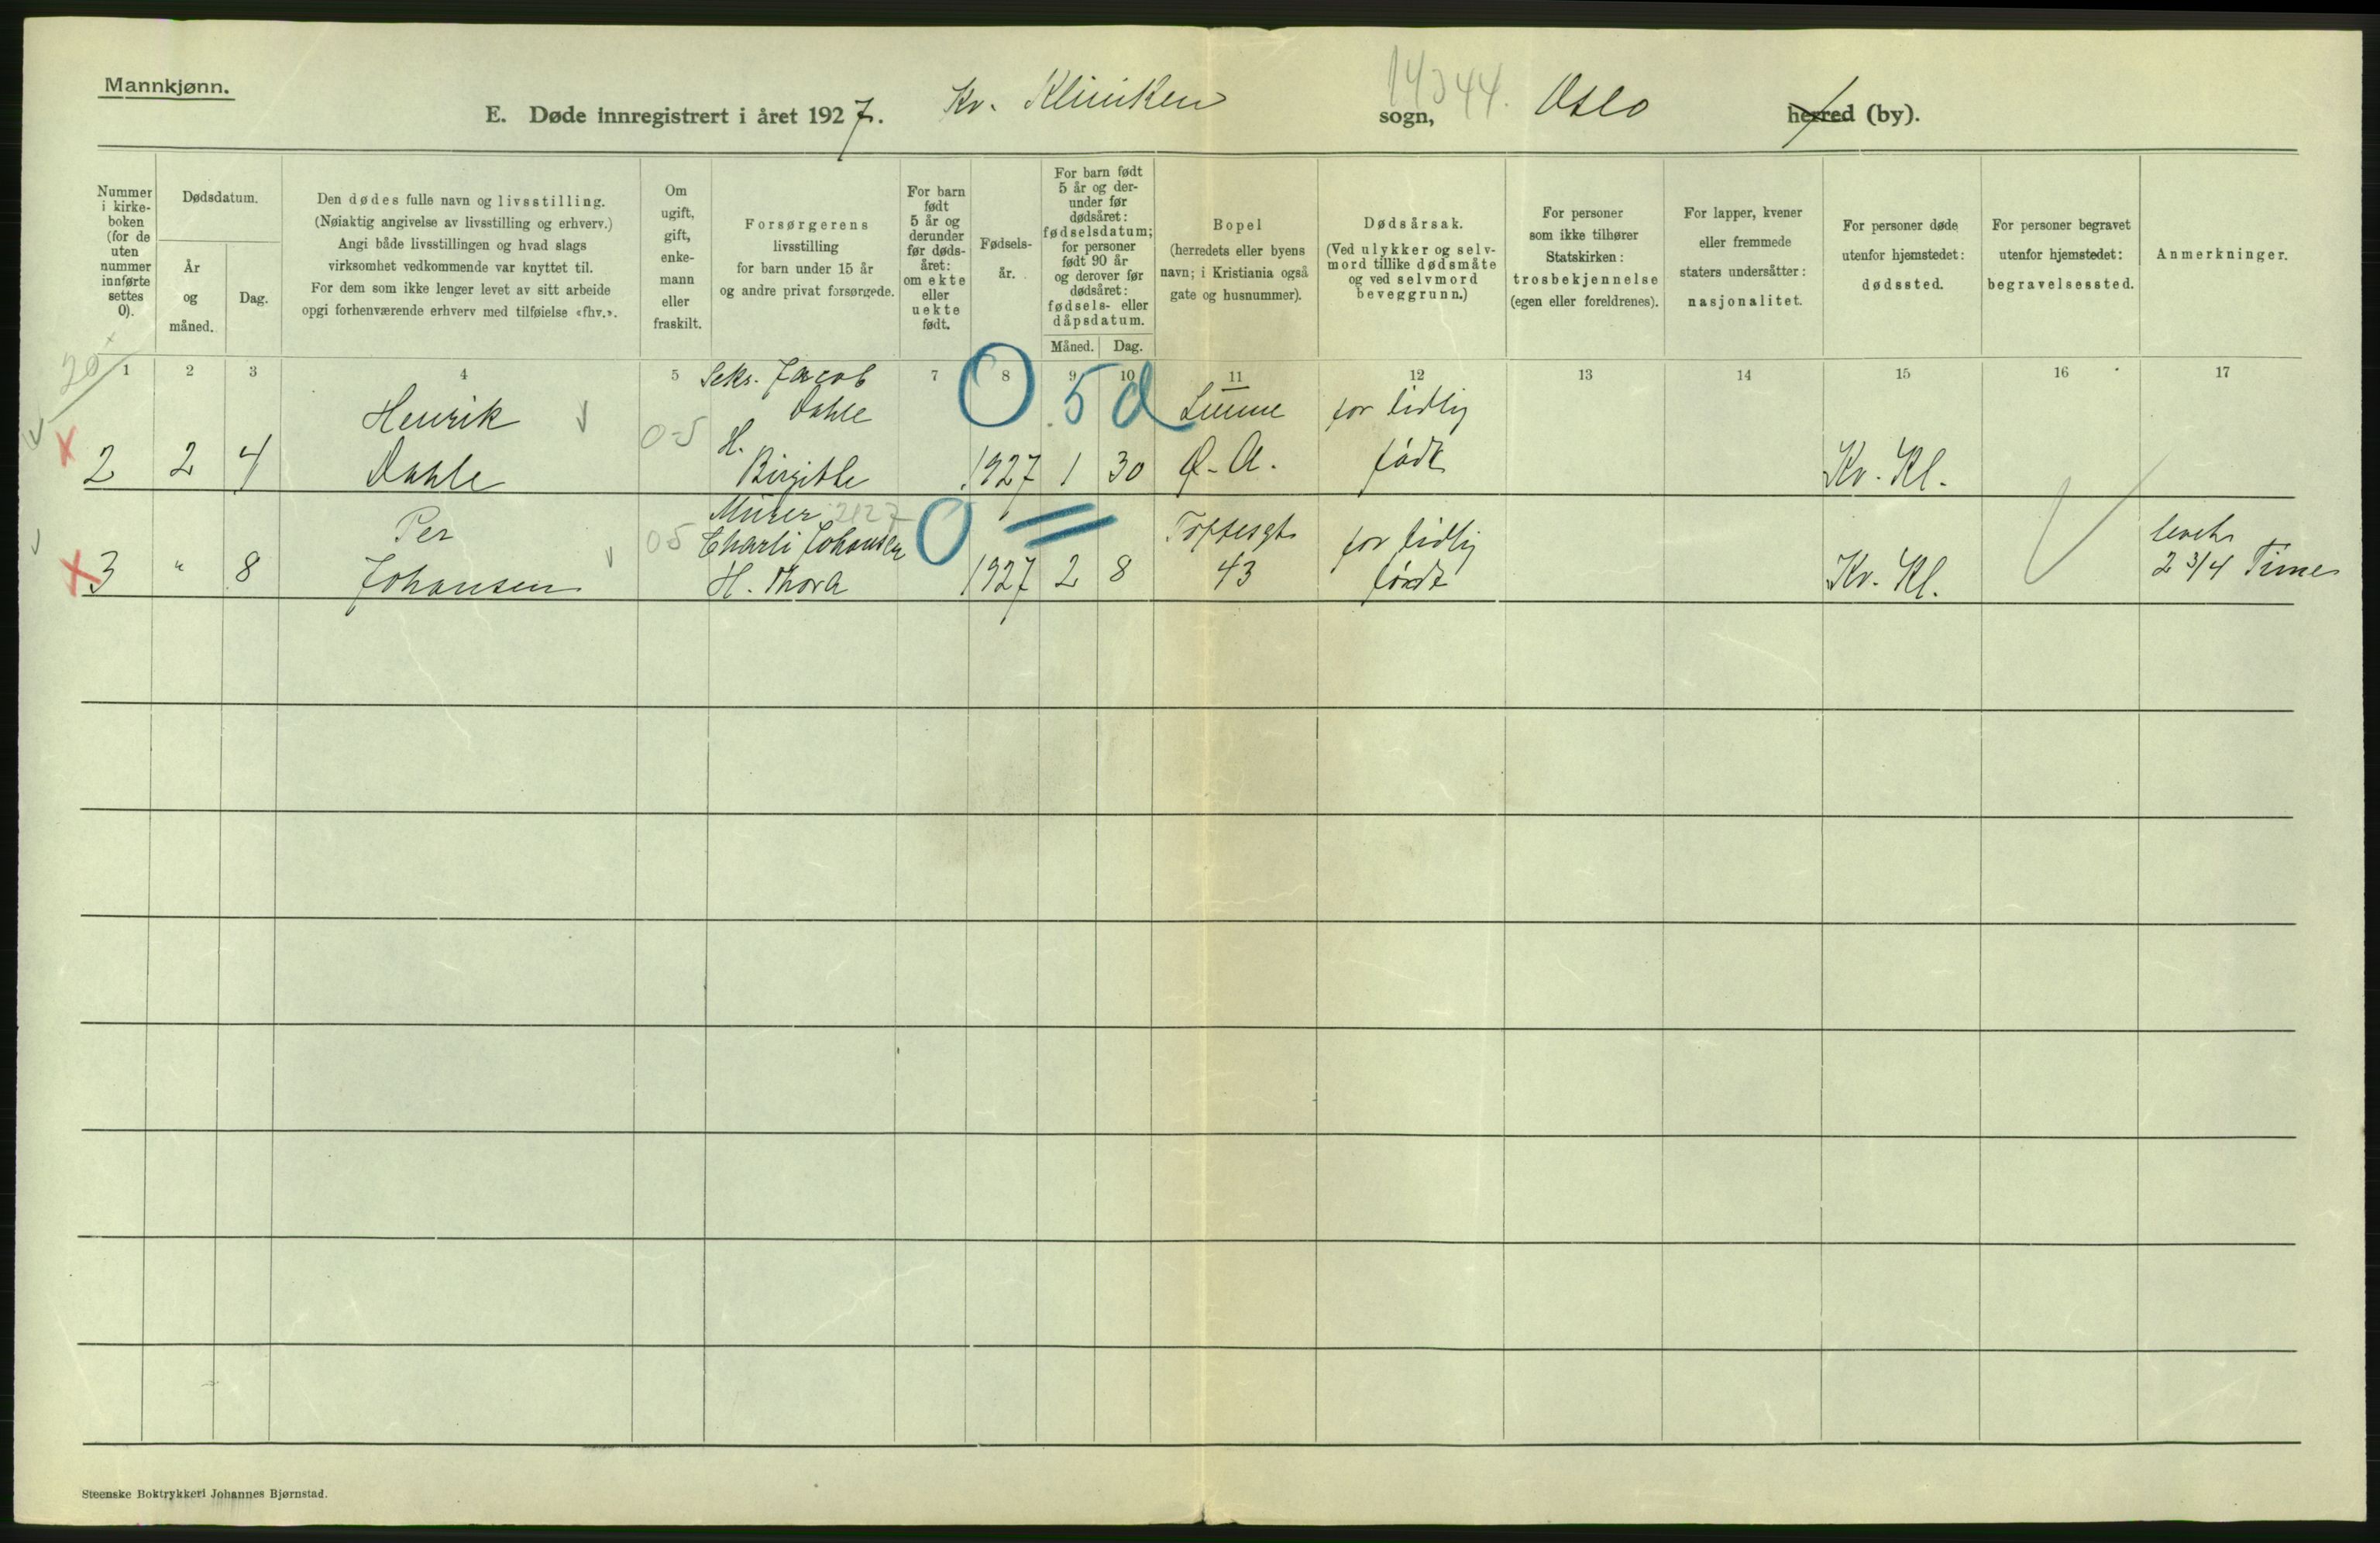 Mannkjønn.
E. Døde innregistrert i året 1927. Kv. Kliniken sogn, 14344. Oslo herred (by).
Nummer i kirke- boken (for de uten nummer innførte settes 0).
Dødsdatum.
År og måned.
Dag.
Den dødes fulle navn og livsstilling.
(Nøiaktig angivelse av livsstilling og erhverv.)
Angi både livsstillingen og hvad slags
virksomhet vedkommende var knyttet til.
For dem som ikke lenger levet av sitt arbeide
opgi forhenværende erhverv med tilføielse «fhv.».
Om ugift, gift, enke- mann eller fraskilt.
Forsørgerens
livsstilling
for barn under 15 år
og andre privat forsørgede.
For barn født 5 år og derunder før døds- året: om ekte eller uekte født.
Fødsels- år.
For barn født 5 år og der- under før dødsåret: fødselsdatum; for personer født 90 år og derover før dødsåret: fødsels- eller dåpsdatum.
Måned. Dag.
Bopel
(herredets eller byens
navn; i Kristiania også
gate og husnummer).
Dødsårsak.
(Ved ulykker og selv-
mord tillike dødsmåte
og ved selvmord
beveggrunn.)
For personer
som ikke tilhører
Statskirken:
trosbekjennelse
(egen eller foreldrenes).
For lapper, kvener
eller fremmede
staters undersåtter:
nasjonalitet.
For personer døde
utenfor hjemstedet:
dødssted.
For personer begravet
utenfor hjemstedet:
begravelsessted.
Anmerkninger.
20
1 2 3 4 5 6 7 8 9 10 11 12 13 14 15 16 17
Seks. Jacob
Dahle
H.
Birgithe
0 5 d
Henrik
Dahle
0-5
2 2 4
1927 1 30
Ø. A.
for tidlig
født
Kv. Kl.
Murer 2127
Charli Johansen
H. Thora
0 =
Per
Johansen
05
3 " 8
1927 2 8
Toftesgt.
43
for tidlig
født
Kv. Kl.
levet
2 3/4 Time
Steenske Boktrykkeri Johannes Bjørnstad.